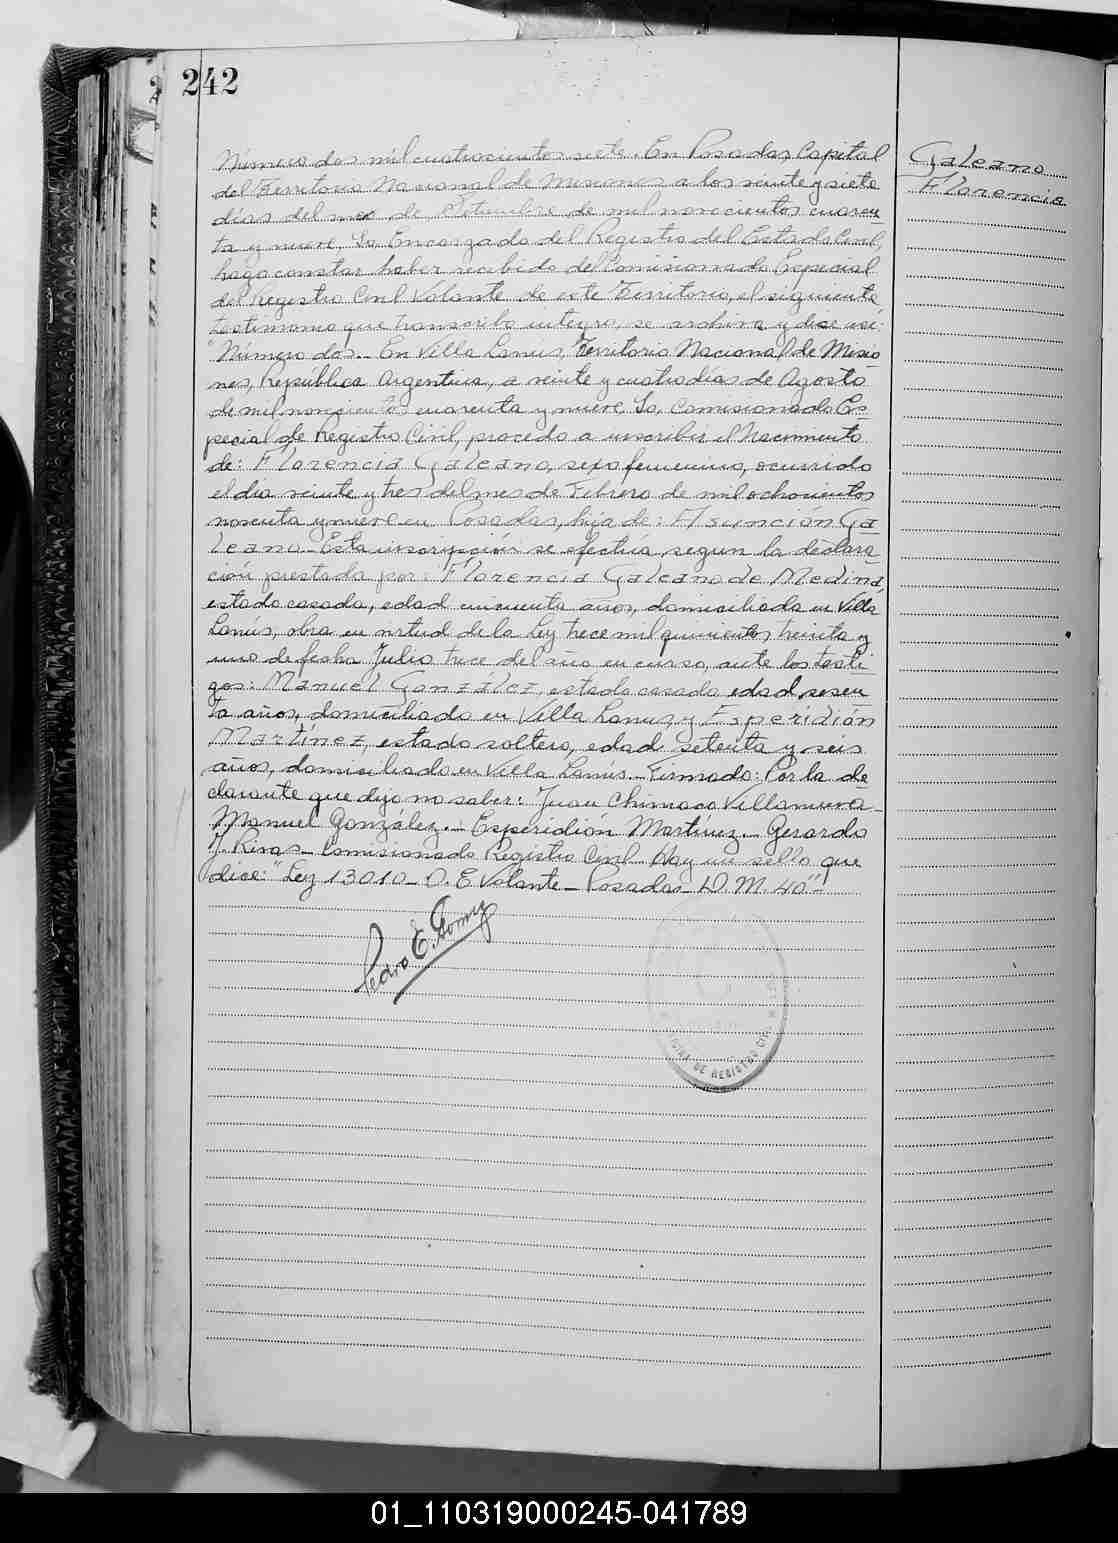 242
Número dos mil cuatrocientos siete. En Posadas, Capital
del Territorio Nacional de Misiones a los veinte y siete
días del mes de Setiembre de mil novecientos cuaren-
ta y nueve, Yo, Encargado del Registro del Estado Civil,
hago constar haber recibido del Comisionado Especial
del Registro Civil Volante de este Territorio, el siguiente
testimonio que transcribo íntegro, se archiva y dice así:
"Número dos._ En Villa Lanús, Territorio Nacional de Misio
nes, República Argentina, a veinte y cuatro días de Agosto
de mil novecientos cuarenta y nueve. Yo, Comisionado Es-
pecial de Registro Civil, procedo a inscribir el Nacimiento
de: Florencia Galeano, sexo femenino, ocurrido
el día veinte y tres del mes de Febrero de mil ochocientos
noventa y nueve en Posadas, hija de: Asunción Ga
leano._ Esta inscripción se efectúa, segun la declara-
ción prestada por: Florencia Galeano de Medina,
estado casada, edad cincuenta años, domiciliada en Villa
Lanús, obra en virtud de la Ley trece mil quinientos treinta y
uno de fecha Julio trece del año en curso, ante los testi-
gos: Manuel González, estado casado edad, sesen
ta años, domiciliado en Villa Lanus, y Esperidión
Martínez, estado soltero, edad setenta y seis
años, domiciliado en Villa Lanús._ Firmado: Por la de
clarante que dijo no saber: Juan Chimaco Villanueva_
Manuel González._ Esperidión Martínez._ Gerardo
J. Rivas_ Comisionado Registro Civil. Hay un sello que
dice: "Ley 13010_ O. E Volante_ Posadas_ D. M. 40"_
Pedro E. Gomez
DE REGISTRO CIVIL
Galeano
Florencia
01_110319000245-041789